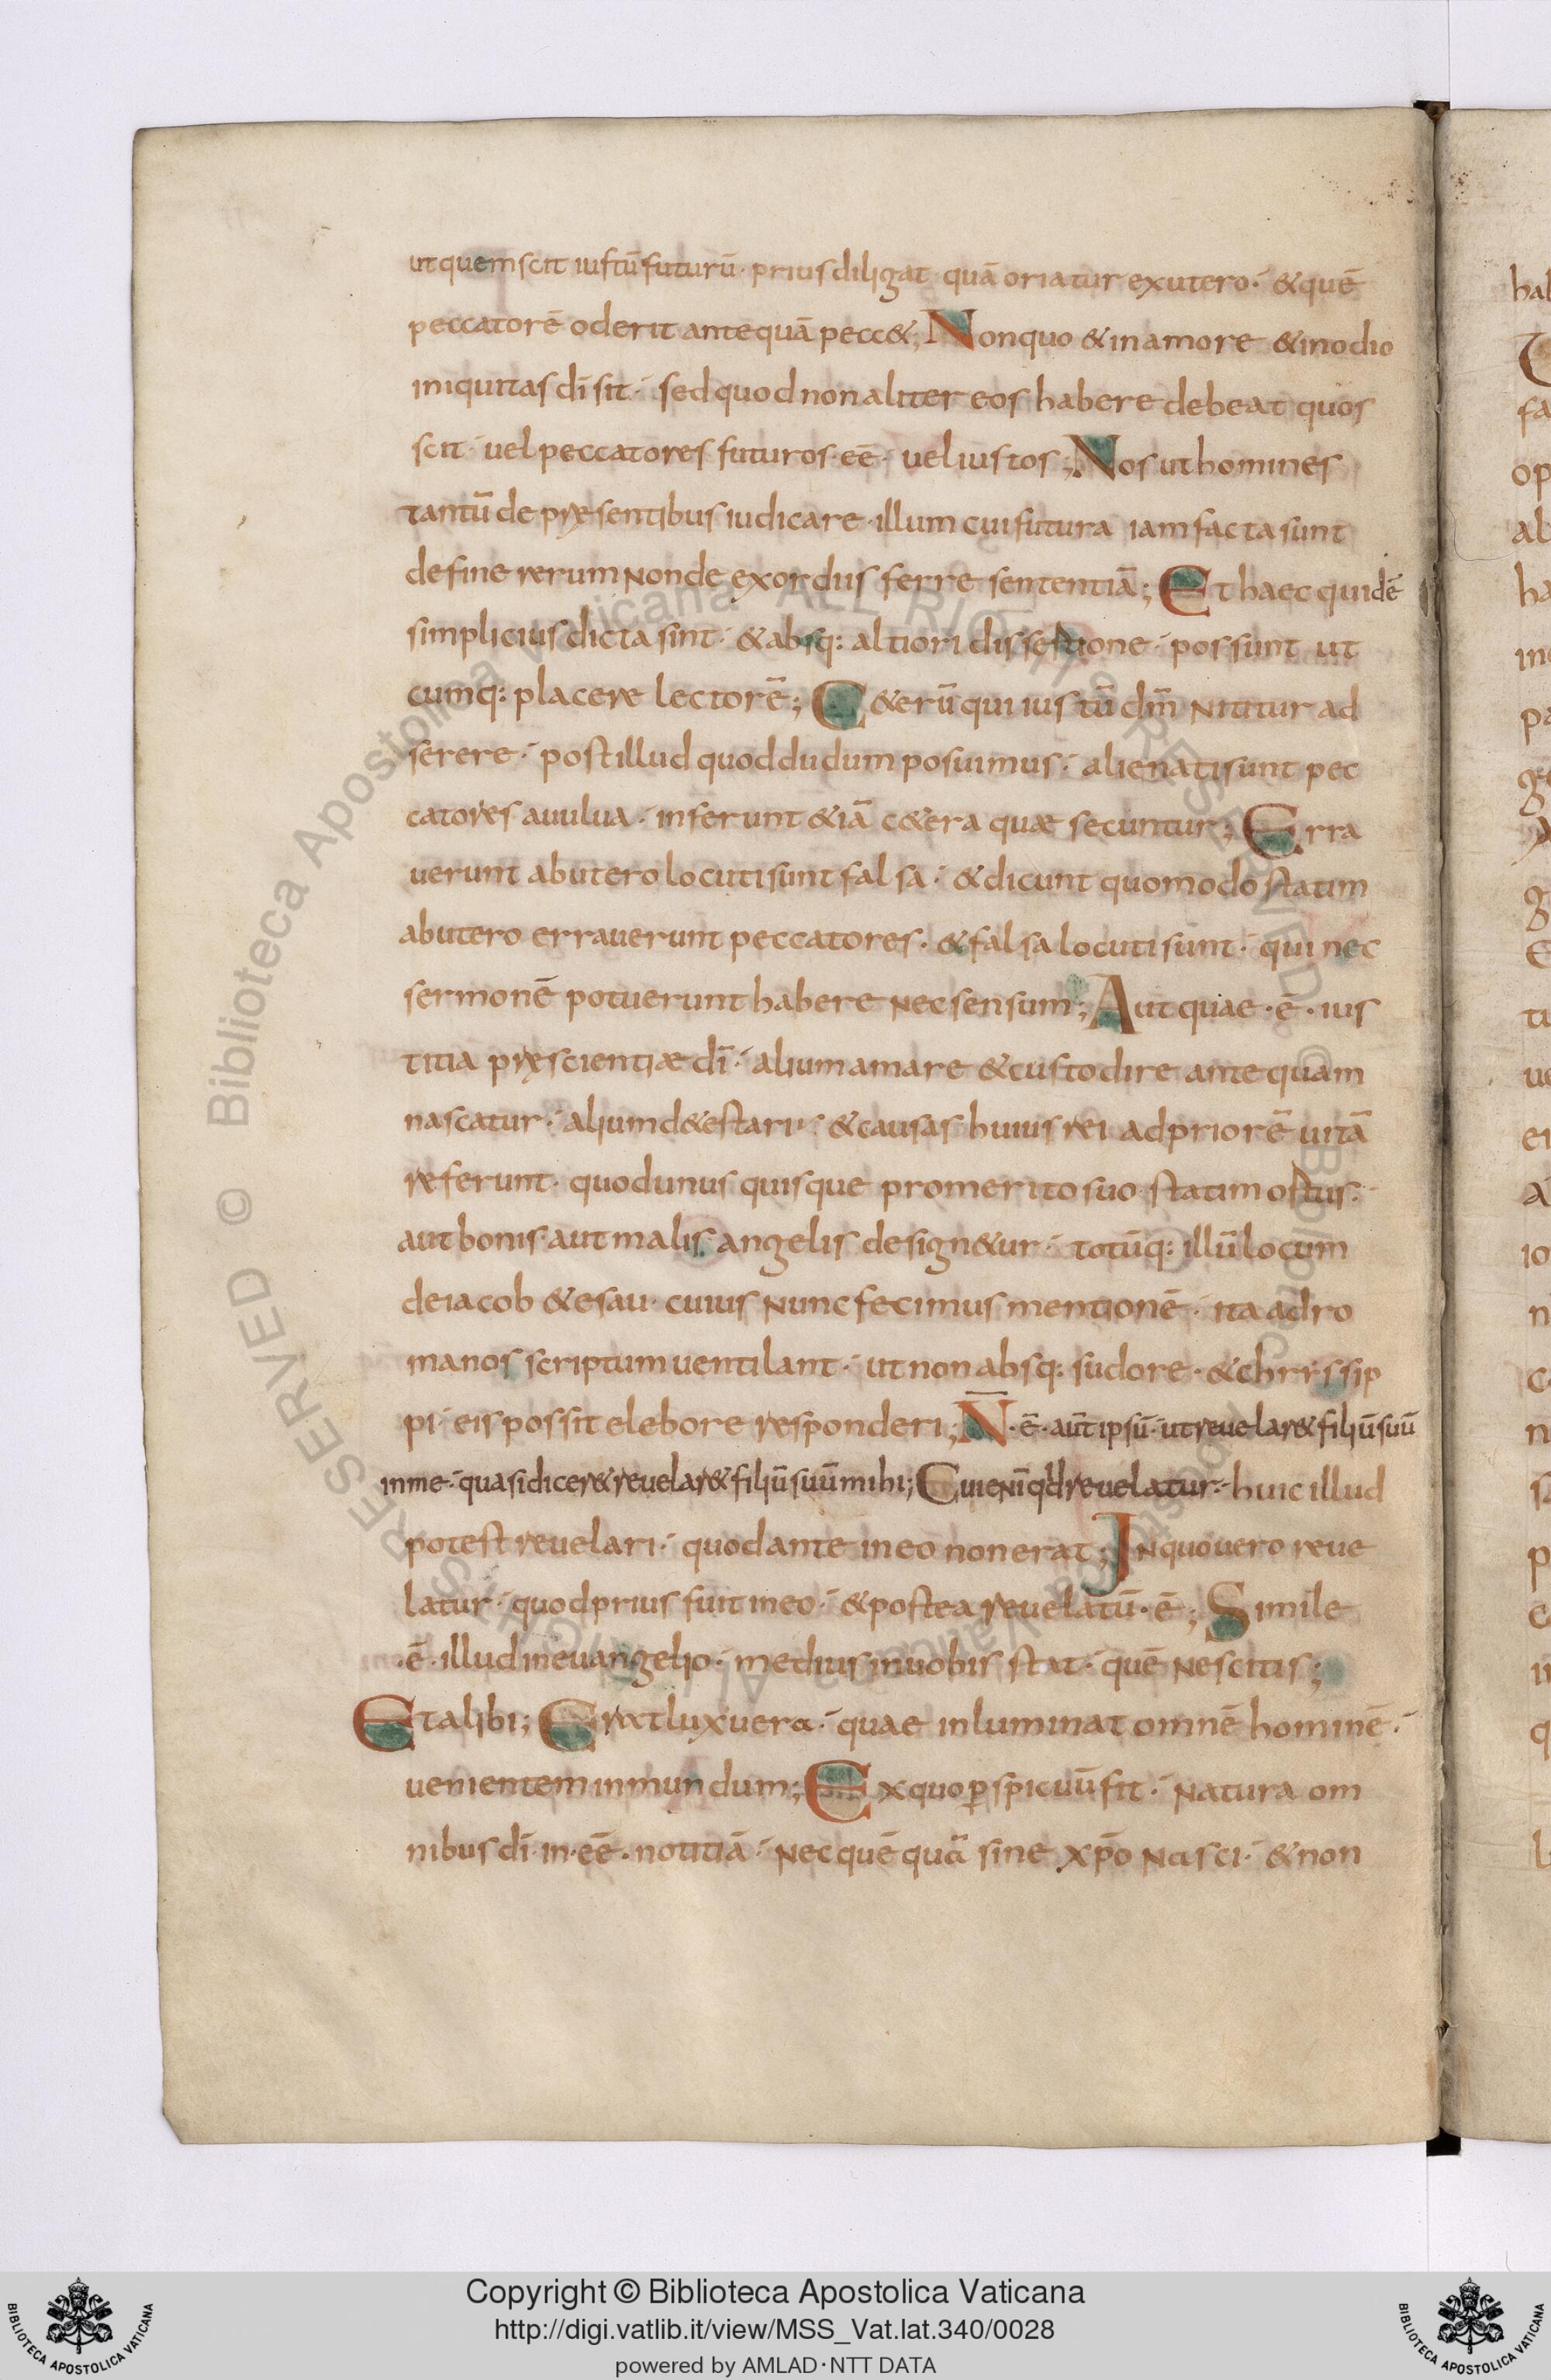 ut quem scit iustū futurū · prius diligat · quā oriatur ex utero · & quē
peccatorē oderit antequā pecc&; Non quo & in amore & in odio
iniquitas dī sit · sed quod non aliter eos habere debeat quos
scit · uel peccatores futuros · eē · uel iustos; Nos ut homines
tantū de præsentibus iudicare · illum cui futura iam facta sunt
de fine rerum non de exordiis ferre sententiā; Et haec quidē
simplicius dicta sint · & absq: altiori dissertione · possunt ut
cumq: placere lectorē; C&erū qui iustū dm̄ nititur ad
serere · post illud quod dudum posuimus · alienati sunt pec
catores a uulua · inferunt &iā c&era quæ secuntur; Erra
uerunt ab utero locuti sunt falsa · & dicunt quomodo statim
ab utero errauerunt peccatores · & falsa locuti sunt · qui nec
sermonē potuerunt habere nec sensum; Aut quae · ē · ius
titia præscientiæ dī · alium amare & custodire antequam
nascatur · alium d&estari · & causas huius rei ad priorē uitā
referunt · quod unusquisque pro merito suo statim ortus ·
aut bonis aut malis angelis design&ur · totūq: illū locum
de iacob & esau · cuius nunc fecimus mentionē · ita ad ro
manos scriptum uentilant · ut non absq: sudore · & chrissip
pi · eis possit elebore responderi; N̄ · ē · aūt ipsū · ut reuelar& filiū suū
in me · quasi dicer& reuelar& filiū suū mihi; Cui enī qd reuelatur · huic illud
potest reuelari · quod ante in eo non erat; In quo uero reue
latur · quod prius fuit in eo · & postea reuelatū · ē; Simile
· ē · illud in euangelio · medius in uobis stat · quē nescitis;
Et alibi; Erat lux uera · quae inluminat omnē hominē ·
uenientem in mundum; Ex quo ꝑspicuū fit · natura om
nibus dī · in · eē · notitiā · nec quēquā sine xp̄o nasci · & non
Copyright © Biblioteca Apostolica Vaticana
http://digi.vatlib.it/view/MSS_Vat.lat.340/0028
powered by AMLAD·NTT DATA
BIBLIOTECA APOSTOLICA VATICANA
BIBLIOTECA APOSTOLICA VATICANA